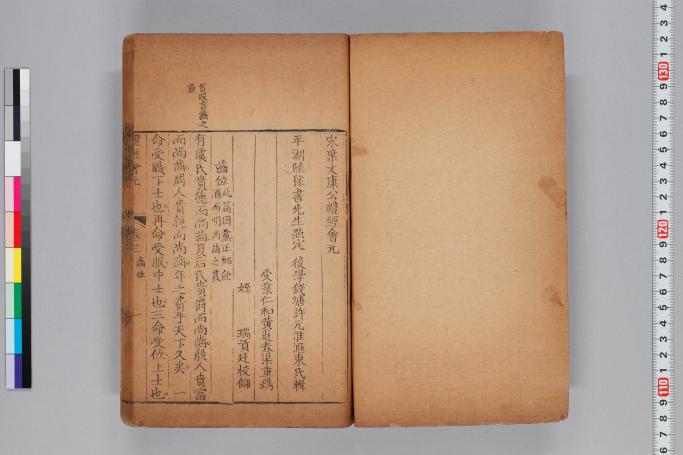 宋葉文康公禮經會元
平湖陸稼書先生點定 後學錢塘許元淮滙東氏輯
受業仁和黃
姪 瑞 貢廷校
齒位此篇因黨正細飲酒而明尚齒之義
有虞氏貴德而尚齒夏后氏貴爵而尚齒殷人貴富
而尚齒周人貴親而尚齒年之貴乎天下久矣一
命受職下士也再命受服中士也三命受位上士也
首段言齒之重
禮經會元
齒位
130
120
110